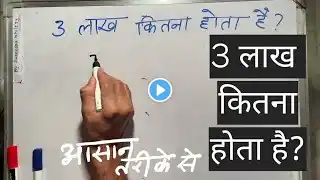 3 लाख कितना होता है?
3 लाख
कितना
होता है?
आसान
तरीके से